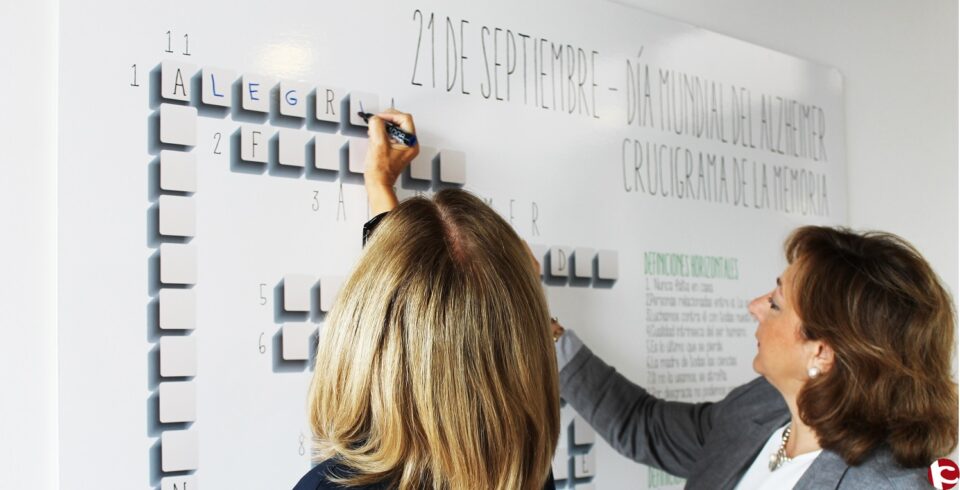 21 DE SEPTIEMBRE - DÍA MUNDIAL DEL ALZHEIMER
CRUCIGRAMA DE LA MEMORIA
11
1 ALEGRI
2 F
3 A M E R
D
5
6
8
E
N
DEFINICIONES HORIZONTALES
1. Nunca falta en casa
2.Personas relacionadas entre sí. La
3.Luchamos contra él con todas
4.Cualidad intrínseca del ser humano
5.Es lo último que se pierde
6.La madre de todas las ciencias
7.Si no la usamos, se atrofia
8.Por desgracia no podemos
DEFINI